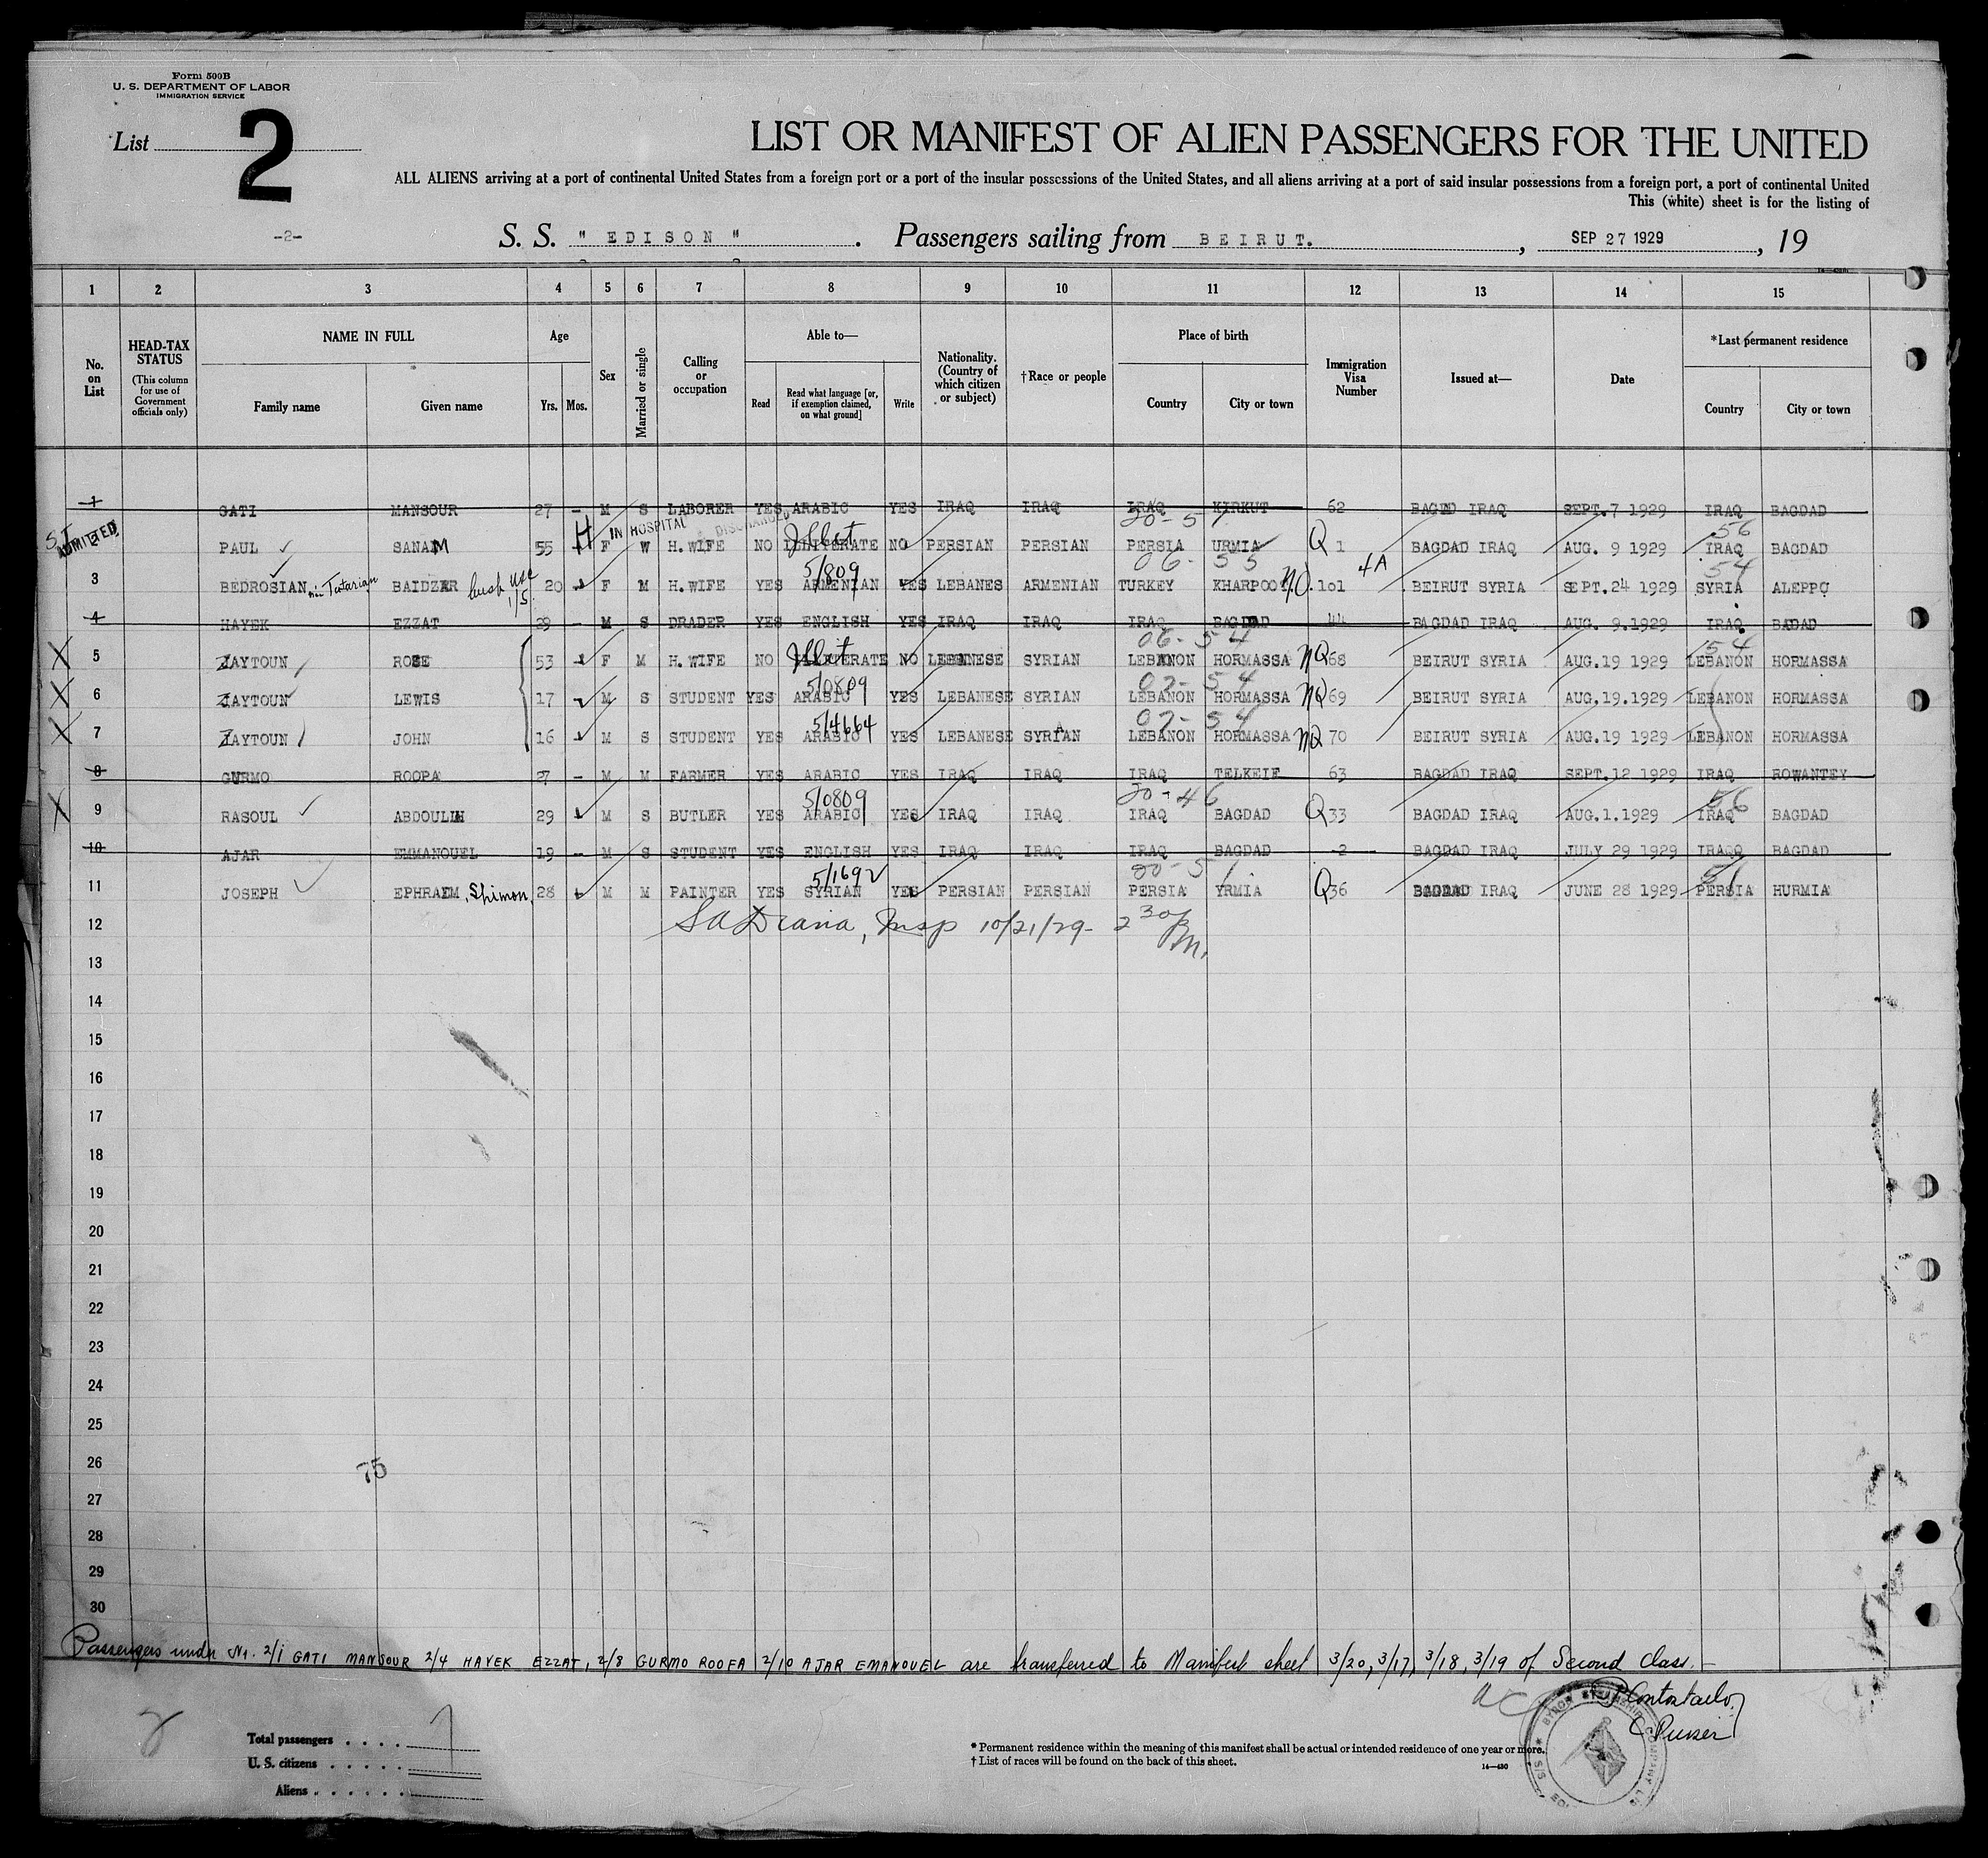 Form 500B
U. S. DEPARTMENT OF LABOR
IMMIGRATION SERVICE
List
2
LIST OR MANIFEST OF ALIEN PASSENGERS FOR THE UNITED
ALL ALIENS arriving at a port of continental United States from a foreign port or a port of the insular possessions of the United States, and all aliens arriving at a port of said insular possessions from a foreign port, a port of continental United
This (white) sheet is for the listing of
-2-
S. S. " EDISON " . Passengers sailing from BEIRUT. , SEP 27 1929 , 19
1 2 3 4 5 6 7 8 9 10 11 12 13 14 15
No. on List
HEAD-TAX STATUS (This column for use of Government officials only)
NAME IN FULL
Family name Given name
Age
Yrs. Mos.
Sex
Married or single
Calling or occupation
Able to—
Read Read what language [or, if exemption claimed, on what ground] Write
Nationality. (Country of which citizen or subject)
†Race or people
Place of birth
Country City or town
Immigration Visa Number
Issued at—
Date
*Last permanent residence
Country City or town
1 GATI MANSOUR 27 – M S LABORER YES ARABIC YES IRAQ IRAQ IRAQ KIRKUT 62 BAGDAD IRAQ SEPT.7 1929 IRAQ BAGDAD
H IN HOSPITAL DISCHARGED 20-51 56
ADMITTED 2 PAUL SANAM 55 F W H.WIFE NO ILLITERATE NO PERSIAN PERSIAN PERSIA URMIA Q 1 BAGDAD IRAQ AUG. 9 1929 IRAQ BAGDAD
5/809 06-55 4A 54
3 BEDROSIAN BAIDZAR 20 F M H.WIFE YES ARMENIAN YES LEBANES ARMENIAN TURKEY KHARPOOT NQ 101 BEIRUT SYRIA SEPT.24 1929 SYRIA ALEPPO
4 HAYEK EZZAT 29 – M S DRADER YES ENGLISH YES IRAQ IRAQ IRAQ BAGDAD 44 BAGDAD IRAQ AUG. 9.1929 IRAQ BADAD
06-54 54
5 ZAYTOUN ROSE 53 F M H.WIFE NO ILLITERATE NO LEBANESE SYRIAN LEBANON HORMASSA NQ 68 BEIRUT SYRIA AUG.19 1929 LEBANON HORMASSA
5/0809 07-54
6 ZAYTOUN LEWIS 17 M S STUDENT YES ARABIC YES LEBANESE SYRIAN LEBANON HORMASSA NQ 69 BEIRUT SYRIA AUG.19.1929 LEBANON HORMASSA
5/4664 07-54
7 ZAYTOUN JOHN 16 M S STUDENT YES ARABIC YES LEBANESE SYRIAN LEBANON HORMASSA NQ 70 BEIRUT SYRIA AUG.19 1929 LEBANON HORMASSA
8 GURMO ROOPA 27 – M M FARMER YES ARABIC YES IRAQ IRAQ IRAQ TELKEIF 63 BAGDAD IRAQ SEPT.12 1929 IRAQ ROWANTEY
5/0809 20-46 56
9 RASOUL ABDOULLH 29 M S BUTLER YES ARABIC YES IRAQ IRAQ IRAQ BAGDAD Q 33 BAGDAD IRAQ AUG.1.1929 IRAQ BAGDAD
10 AJAR EMMANOUEL 19 – M S STUDENT YES ENGLISH YES IRAQ IRAQ IRAQ BAGDAD 2 BAGDAD IRAQ JULY 29 1929 IRAQ BAGDAD
5/1692 20-51 51
11 JOSEPH EPHRAEM, Shimon, 28 M M PAINTER YES SYRIAN YES PERSIAN PERSIAN PERSIA YRMIA Q 36 BAGDAD IRAQ JUNE 28 1929 PERSIA HURMIA
12 Insp 10/21/29 - 2 30 P.M.
13
14
15
16
17
18
19
20
21
22
23
24
25
26
75
27
28
29
30
Passengers under Nr. 2/1 GATI MANSOUR 2/4 HAYEK EZZAT, 2/8 GURMO ROOFA 2/10 AJAR EMANOUEL are transferred to Manifest sheet 3/20, 3/17, 3/18, 3/19 of Second Class.–
Purser
BYRON STEAMSHIP COMPANY
Total passengers . . . . 7
U. S. citizens . . . . .
Aliens . . . . . .
* Permanent residence within the meaning of this manifest shall be actual or intended residence of one year or more.
† List of races will be found on the back of this sheet.
14—430